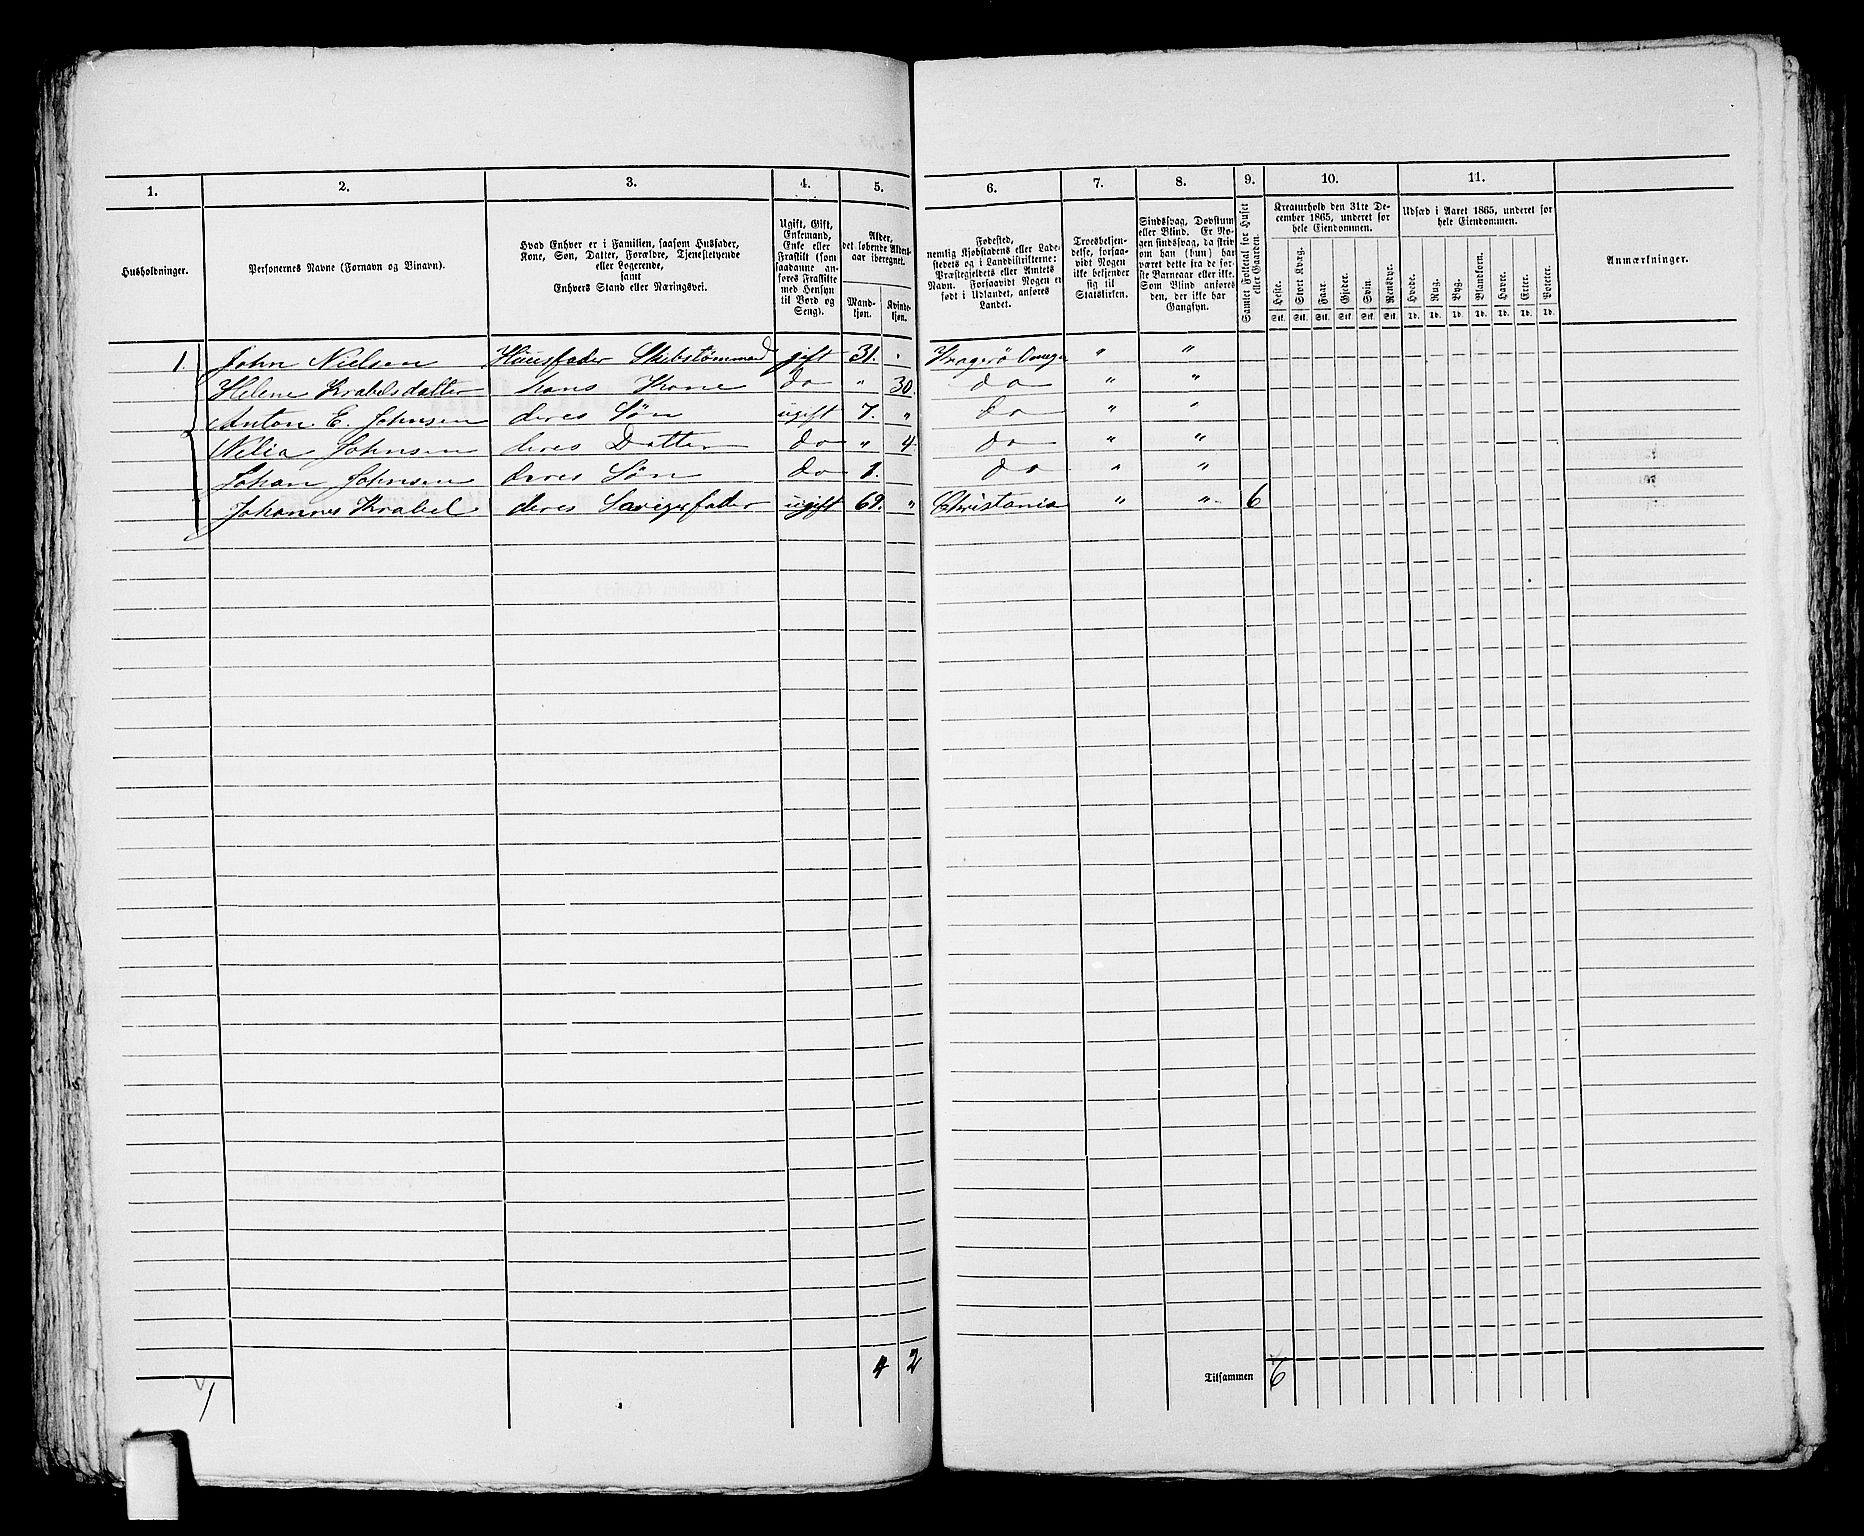 1. 2. 3. 4. 5. 6. 7. 8. 9. 10. 11.
Husholdninger.
Personernes Navne (Fornavn og Binavn).
Hvad Enhver er i Familien, saasom Husfader,
Kone, Søn, Datter, Forældre, Tjenestetyende
eller Logerende,
samt
Enhvers Stand eller Næringsvei.
Ugift, Gift,
Enkemand,
Enke eller
Fraskilt (som
saadanne an-
føres Fraskilte
med Hensyn
til Bord og
Seng).
Alder,
det løbende Alders-
aar iberegnet.
Mand-
kjøn.
Kvinde-
kjøn.
Fødested,
nemlig Kjøbstadens eller Lade-
stedets og i Landdistrikterne:
Præstegjeldets eller Amtets
Navn. Forsaavidt Nogen er
født i Udlandet, anføres
Landet.
Troesbekjen-
delse, forsaa-
vidt Nogen
ikke bekjender
sig til
Statskirken.
Sindssvag, Døvstum
eller Blind. Er No-
gen sindssvag, da skriv
om han (hun) har
været dette fra de før-
ste Barneaar eller ikke.
Som Blind anføres
den, der ikke har
Gangsyn.
Samlet Folketal for Huset
eller Gaarden.
Kreaturhold den 31te De-
cember 1865, underet for
hele Eiendommen.
Heste. Stort Kvæg. Faar. Gjeder. Svin. Rensdyr.
Stk. Stk. Stk. Stk. Stk. Stk.
Udsæd i Aaret 1865, underet for
hele Eiendommen.
Hvede. Rug. Byg. Blandkorn. Havre. Erter. Poteter.
Td. Td. Td. Td. Td. Td. Td.
Anmærkninger.
1. John Nielsen Huusfader Skibstømmerd gift 31. " Kragerø Omegn " "
Helene Krabelsdatter hans Kone do " 30. do " "
Anton E. Johnsen deres Søn ugift 7. " do " "
Nilia Johnsen deres Datter do " 4. do " "
Johan Johnsen deres Søn do 1. do " "
Johannes Krabel deres Svigerfader ugift 69. " Christania " " 6
4 2 Tilsammen 6
1